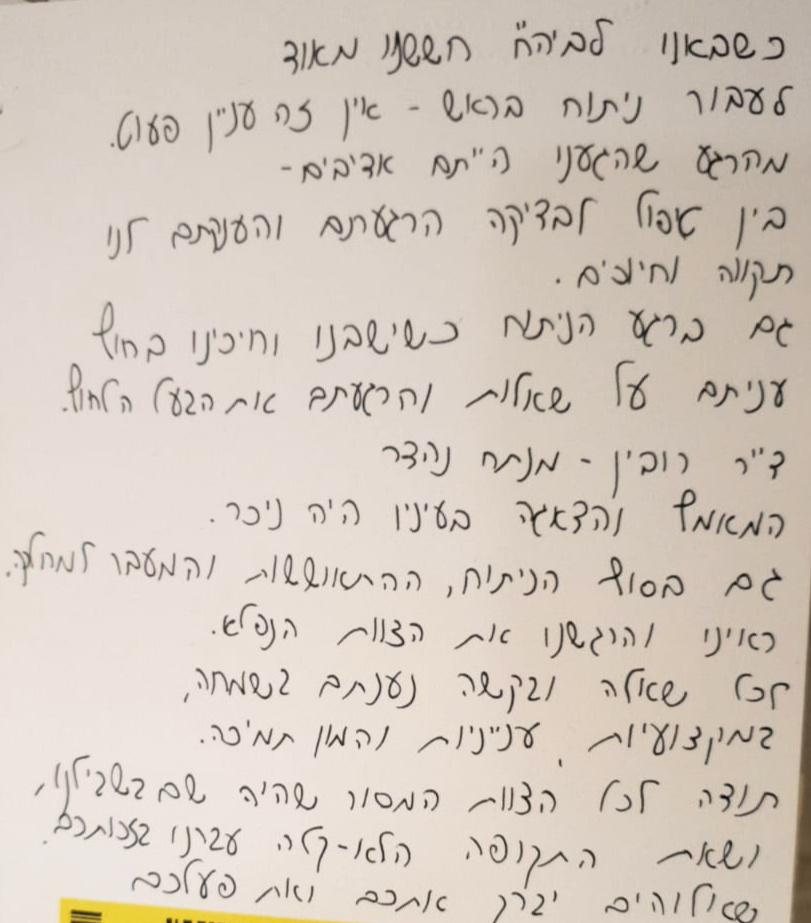 כשבאנו לביה"ח חששנו מאוד
לעבור ניתוח בראש - אין זה עניין פעוט.
מהרגע שהגענו הייתם אדיבים -
בין טיפול לבדיקה הרגעתם והענקתם לנו
תקווה וחיוכים.
גם ברגע הניתוח כשישבנו וחיכינו בחוץ
עניתם על שאלות והרגעתם את הבעל הלחוץ.
ד"ר רובין - מנתח נהדר
המאמץ והדאגה בעיניו היה ניכר.
גם בסוף הניתוח, ההתאוששות והמעבר למחלקה.
ראינו והרגשנו את הצוות הנפלא.
לכל שאלה ובקשה נענתם בשמחה,
במקצועיות, ענייניות והמון תמיכה.
תודה לכל הצוות המסור שהיה שם בשבילנו,
ושאת התקופה הלא-קלה עברנו בזכותכם.
שאלוהים יברך אתכם ואת פעלכם